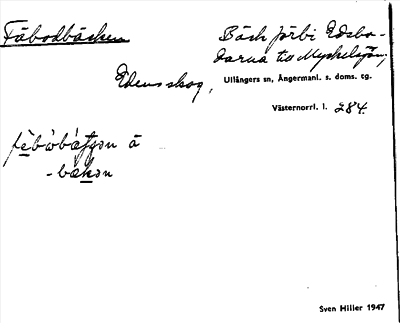 Fäbodbäcken
Bäck förbi Edsbo-
darna till Myckelsjön,
Edens skog,
Ullångers sn, Ångermanl. s. doms. tg.
Västernorrl. l. 284.
fèbòbæ̀tʃən å
-bækən
Sven Hiller 1947